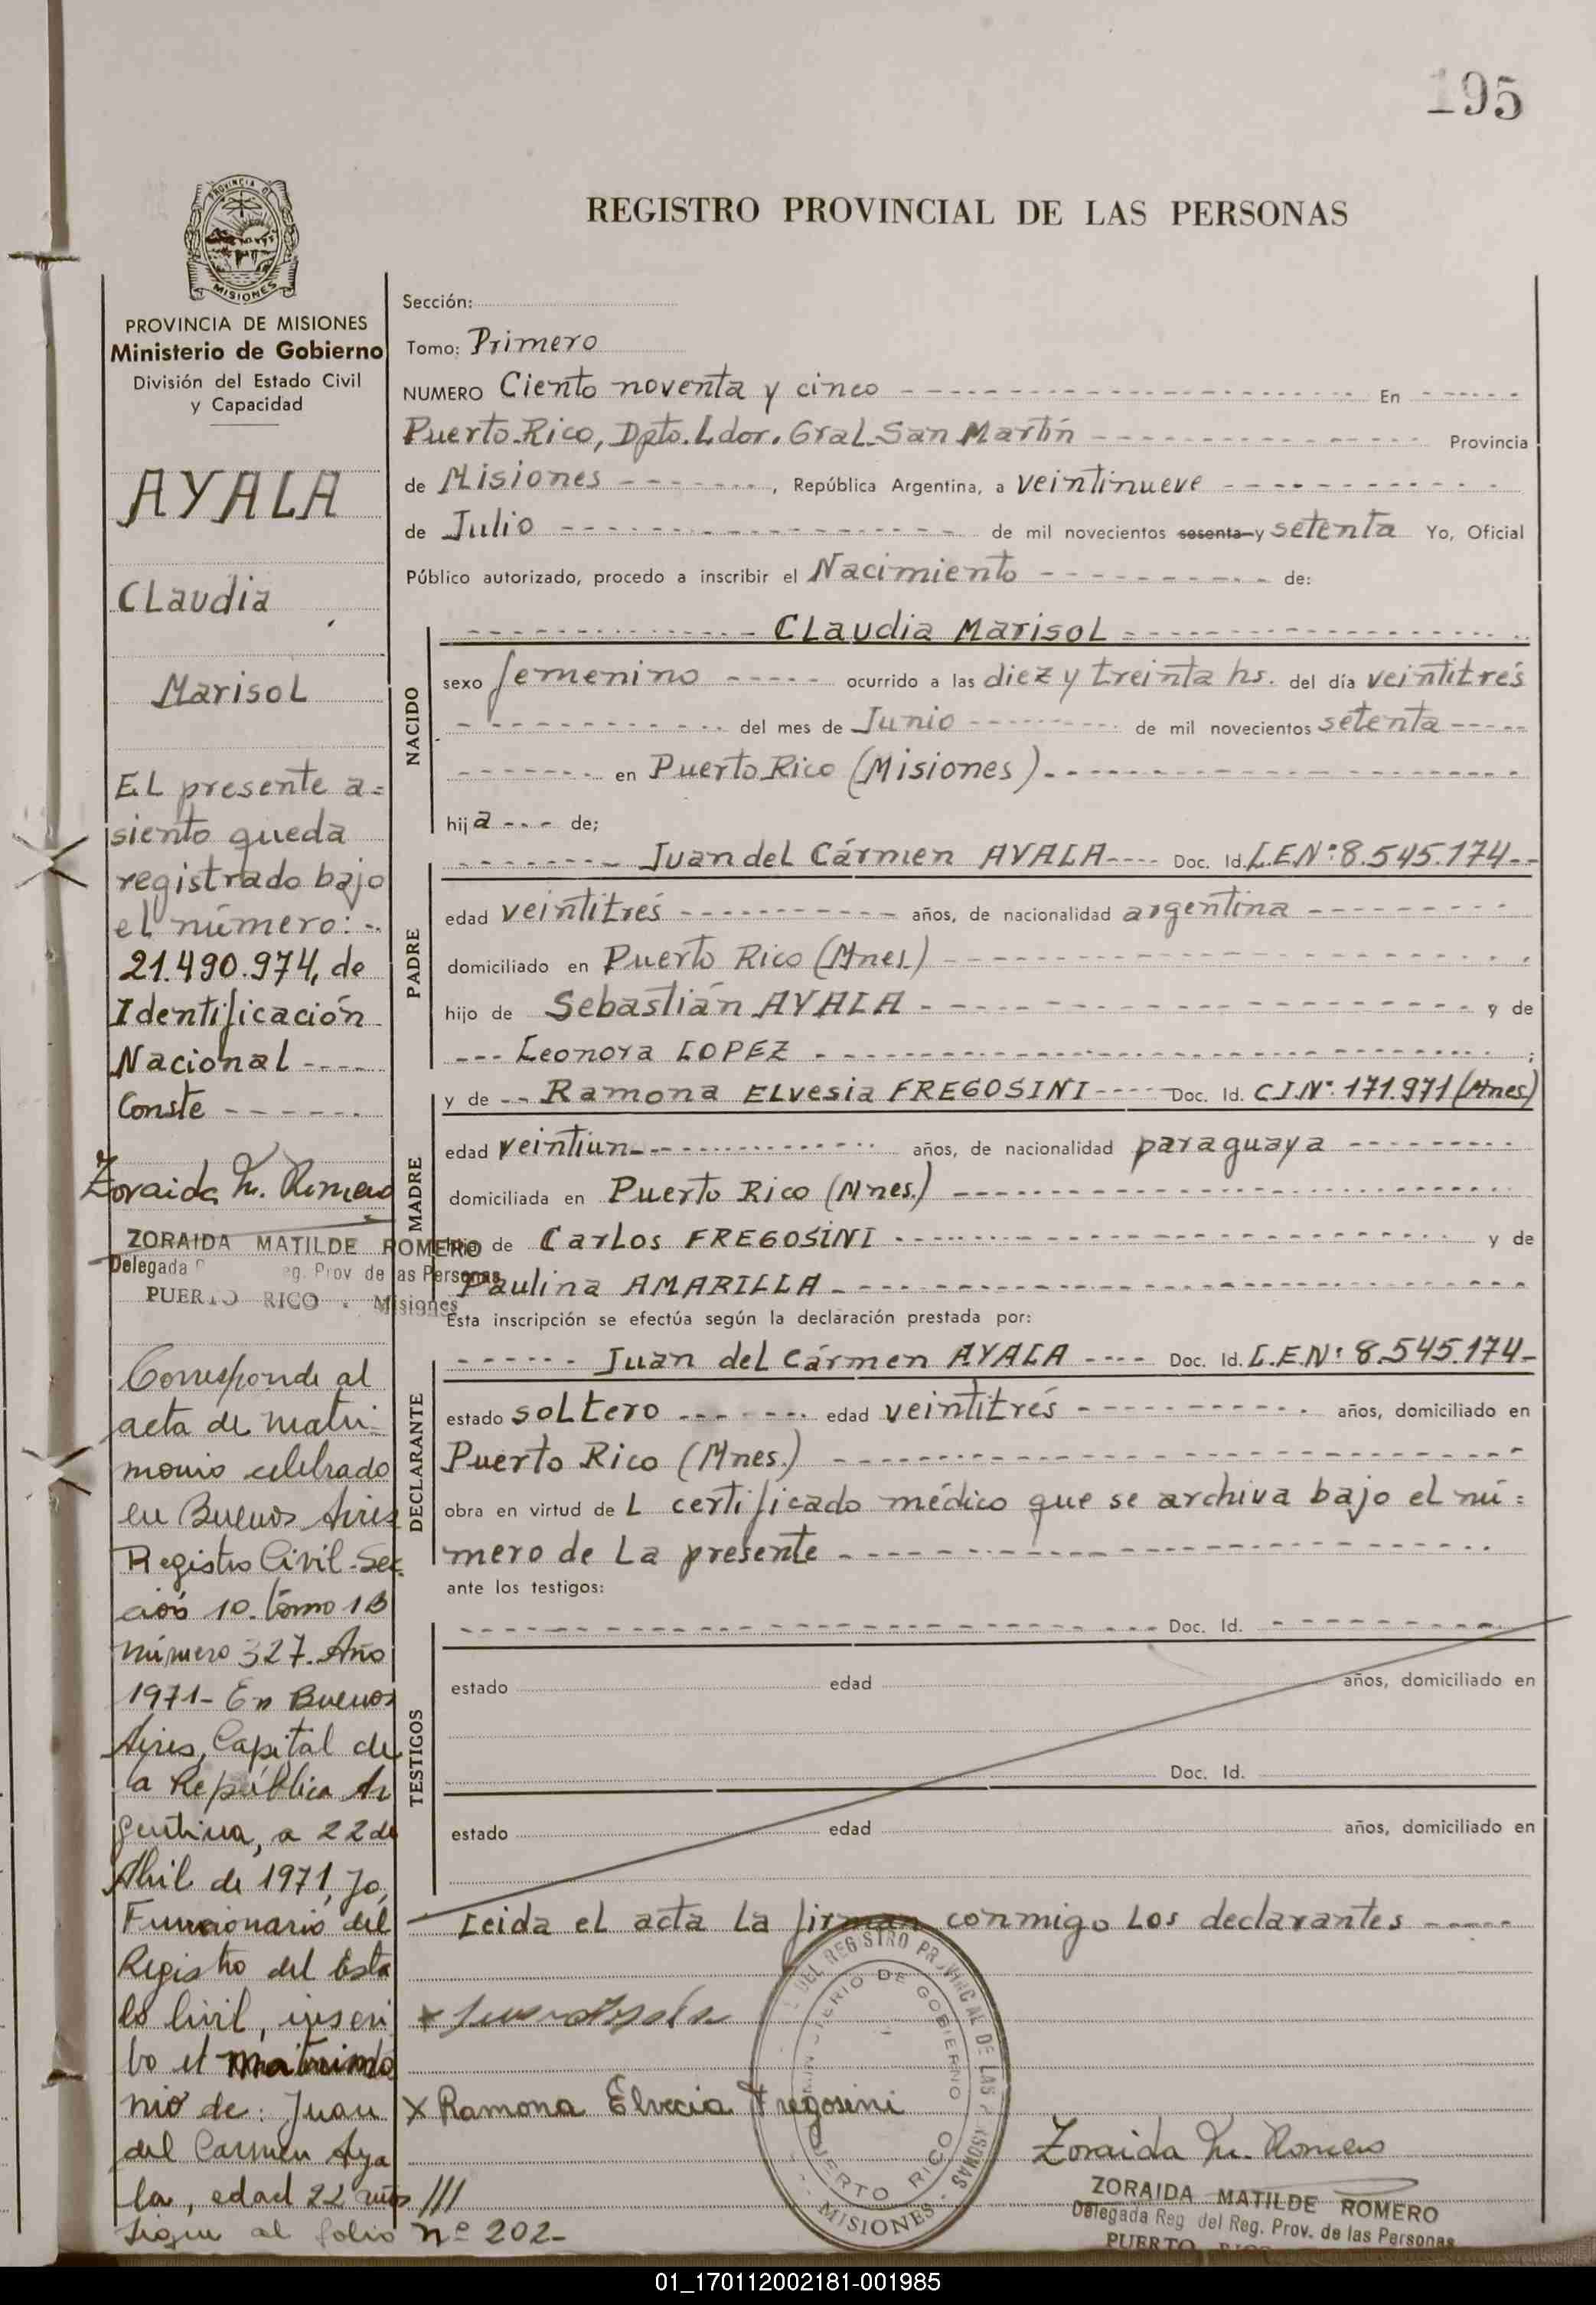 195
REGISTRO PROVINCIAL DE LAS PERSONAS
PROVINCIA DE MISIONES
PROVINCIA DE MISIONES
Ministerio de Gobierno
División del Estado Civil
y Capacidad
AYALA
Claudia
Marisol
El presente a=
siento queda
registrado bajo
el número:-.
21.490.974, de
Identificación
Nacional ----
Conste ------
Zoraida M. Romero
ZORAIDA MATILDE ROMERO
Delegada eg. Prov de las Personas
PUERTO RICO - Misiones
Corresponde al
acta de matri-
monio celebrado
en Buenos Aires
Registro Civil-Sec
ción 10. tomo 1B
número 327. Año
1971- En Buenos
Aires, Capital de
la República Ar
gentina, a 22 de
Abril de 1971, Yo,
Funcionario del
Registro del Esta
do Civil, inscri
bo el matrimo
nio de: Juan
del Carmen Aya
la, edad 22 años ///
Sigue al folio nº 202-
Sección:
Tomo: Primero
NUMERO Ciento noventa y cinco ---- En ----
Puerto Rico, Dpto. Ldor. Gral. San Martín ---- Provincia
de Misiones ----, República Argentina, a veintinueve ----
de Julio ---- de mil novecientos sesenta y setenta Yo, Oficial
Público autorizado, procedo a inscribir el Nacimiento ---- de:
NACIDO
---- Claudia Marisol ----
sexo femenino ---- ocurrido a las diez y treinta hs. del día veintitrés
---- del mes de Junio ---- de mil novecientos setenta ----
---- en Puerto Rico (Misiones). ----
hija --- de;
PADRE
---- Juan del Cármen AYALA ---- Doc. Id. L.E.Nº: 8.545.174--
edad veintitrés ---- años, de nacionalidad argentina ----
domiciliado en Puerto Rico (Mnes.) ----
hijo de Sebastián AYALA ---- y de
--- Leonora LOPEZ ---- ;
MADRE
y de -- Ramona Elvesia FREGOSINI ---- Doc. Id. C.I.Nº: 171.971 (Mnes)
edad veintiun ---- años, de nacionalidad paraguaya ----
domiciliada en Puerto Rico (Mnes.) ----
de Carlos FREGOSINI ---- y de
Paulina AMARILLA ----
Esta inscripción se efectúa según la declaración prestada por:
DECLARANTE
---- Juan del Cármen AYALA ---- Doc. Id. L.E.Nº: 8.545.174-
estado soltero ---- edad veintitrés ---- años, domiciliado en
Puerto Rico (Mnes.) ----
obra en virtud de L certificado médico que se archiva bajo el nú=
mero de la presente ----
ante los testigos:
TESTIGOS
---- Doc. Id. ----
estado edad años, domiciliado en
Doc. Id.
estado edad años, domiciliado en
Leida el acta la firman conmigo los declarantes ----
x Ramona Elvecia Fregosini
DEL REGISTRO PROVINCIAL DE LAS PERSONAS
MINISTERIO DE GOBIERNO
PUERTO RICO
- MISIONES -
Zoraida M. Romero
ZORAIDA MATILDE ROMERO
Delegada Reg. del Reg. Prov. de las Personas
PUERTO RICO
01_170112002181-001985